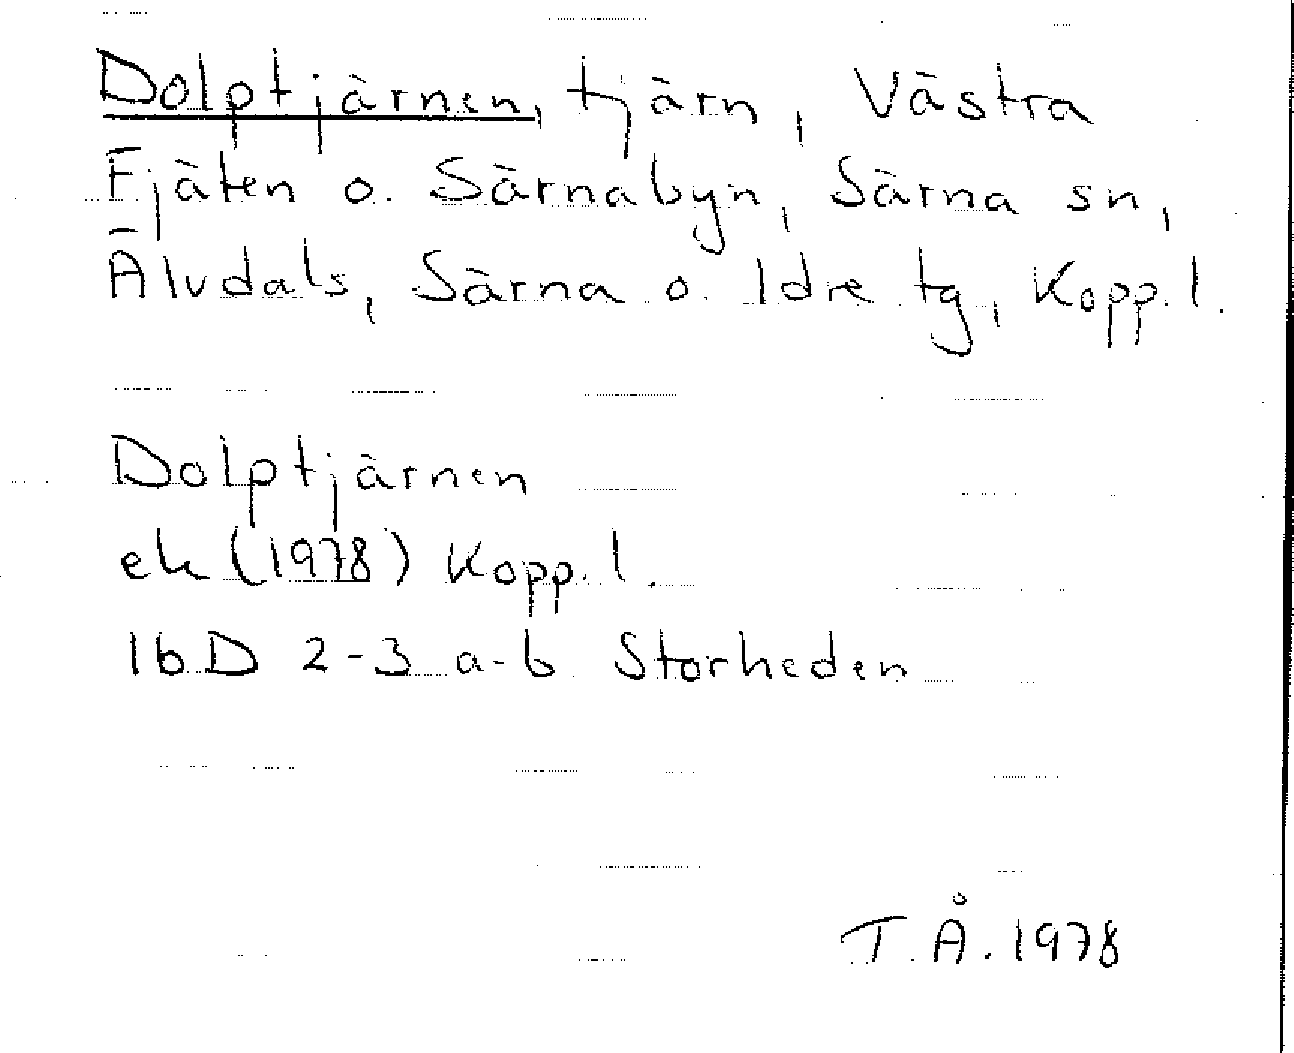 Dolptjärnen, tjärn, Västra
Fjäten o. Särnabyn, Särna sn,
Älvdals, Särna o. Idre tg, Kopp. l.
Dolptjärnen
ek (1978) Kopp. l.
16 D 2-3 a-b Storheden
T. Å. 1978